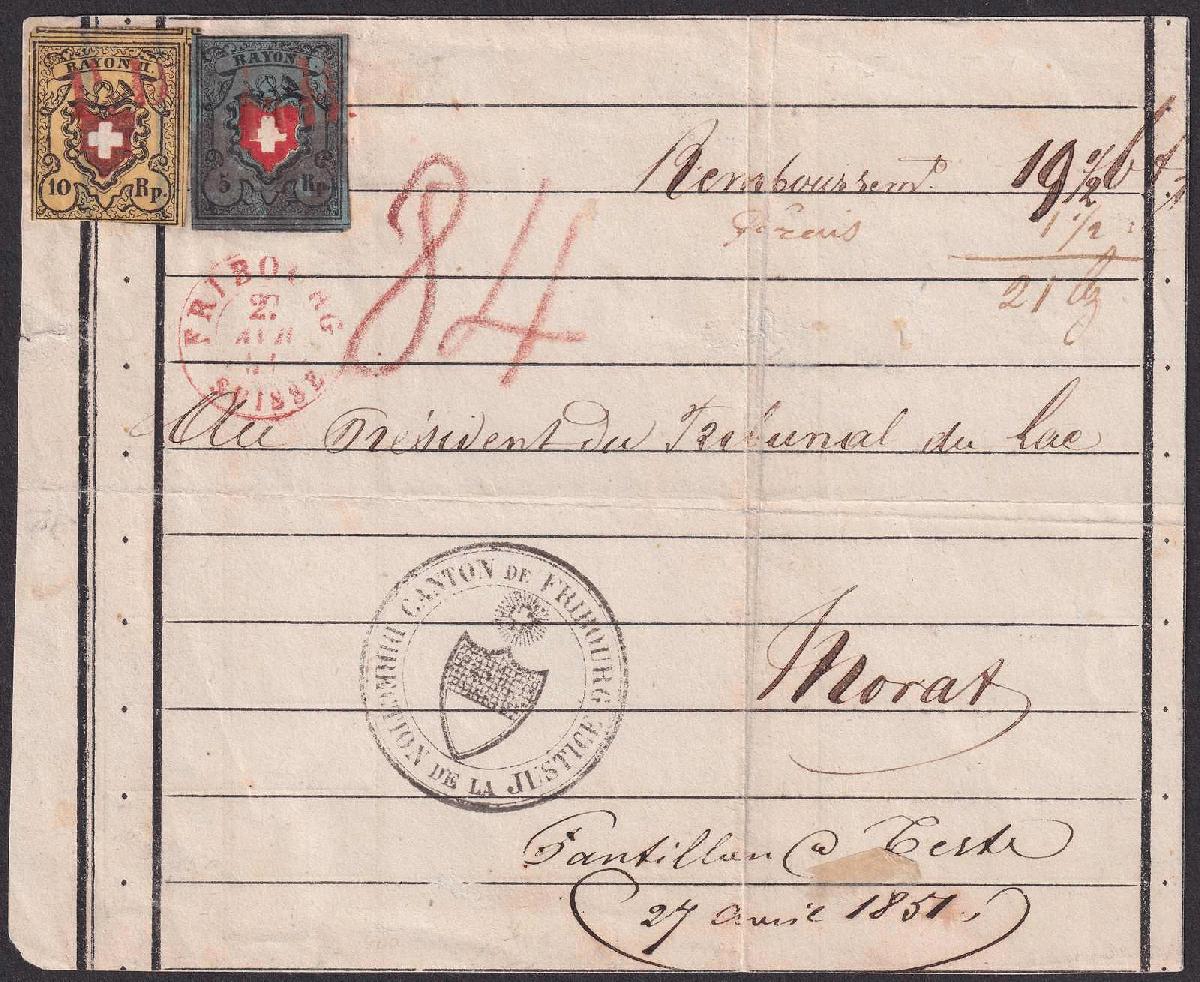 RAYON II.
10 Rp.
RAYON
5 Rp.
Remboursemt. 19 1/2
frais 1 1/2
21 bz
84
FRIBOURG
SUISSE
Au Président du Tribunal du Lac
DIRECTION DE LA JUSTICE
CANTON DE FRIBOURG
Morat
Pantillon Ca Teste
27 avril 1851.